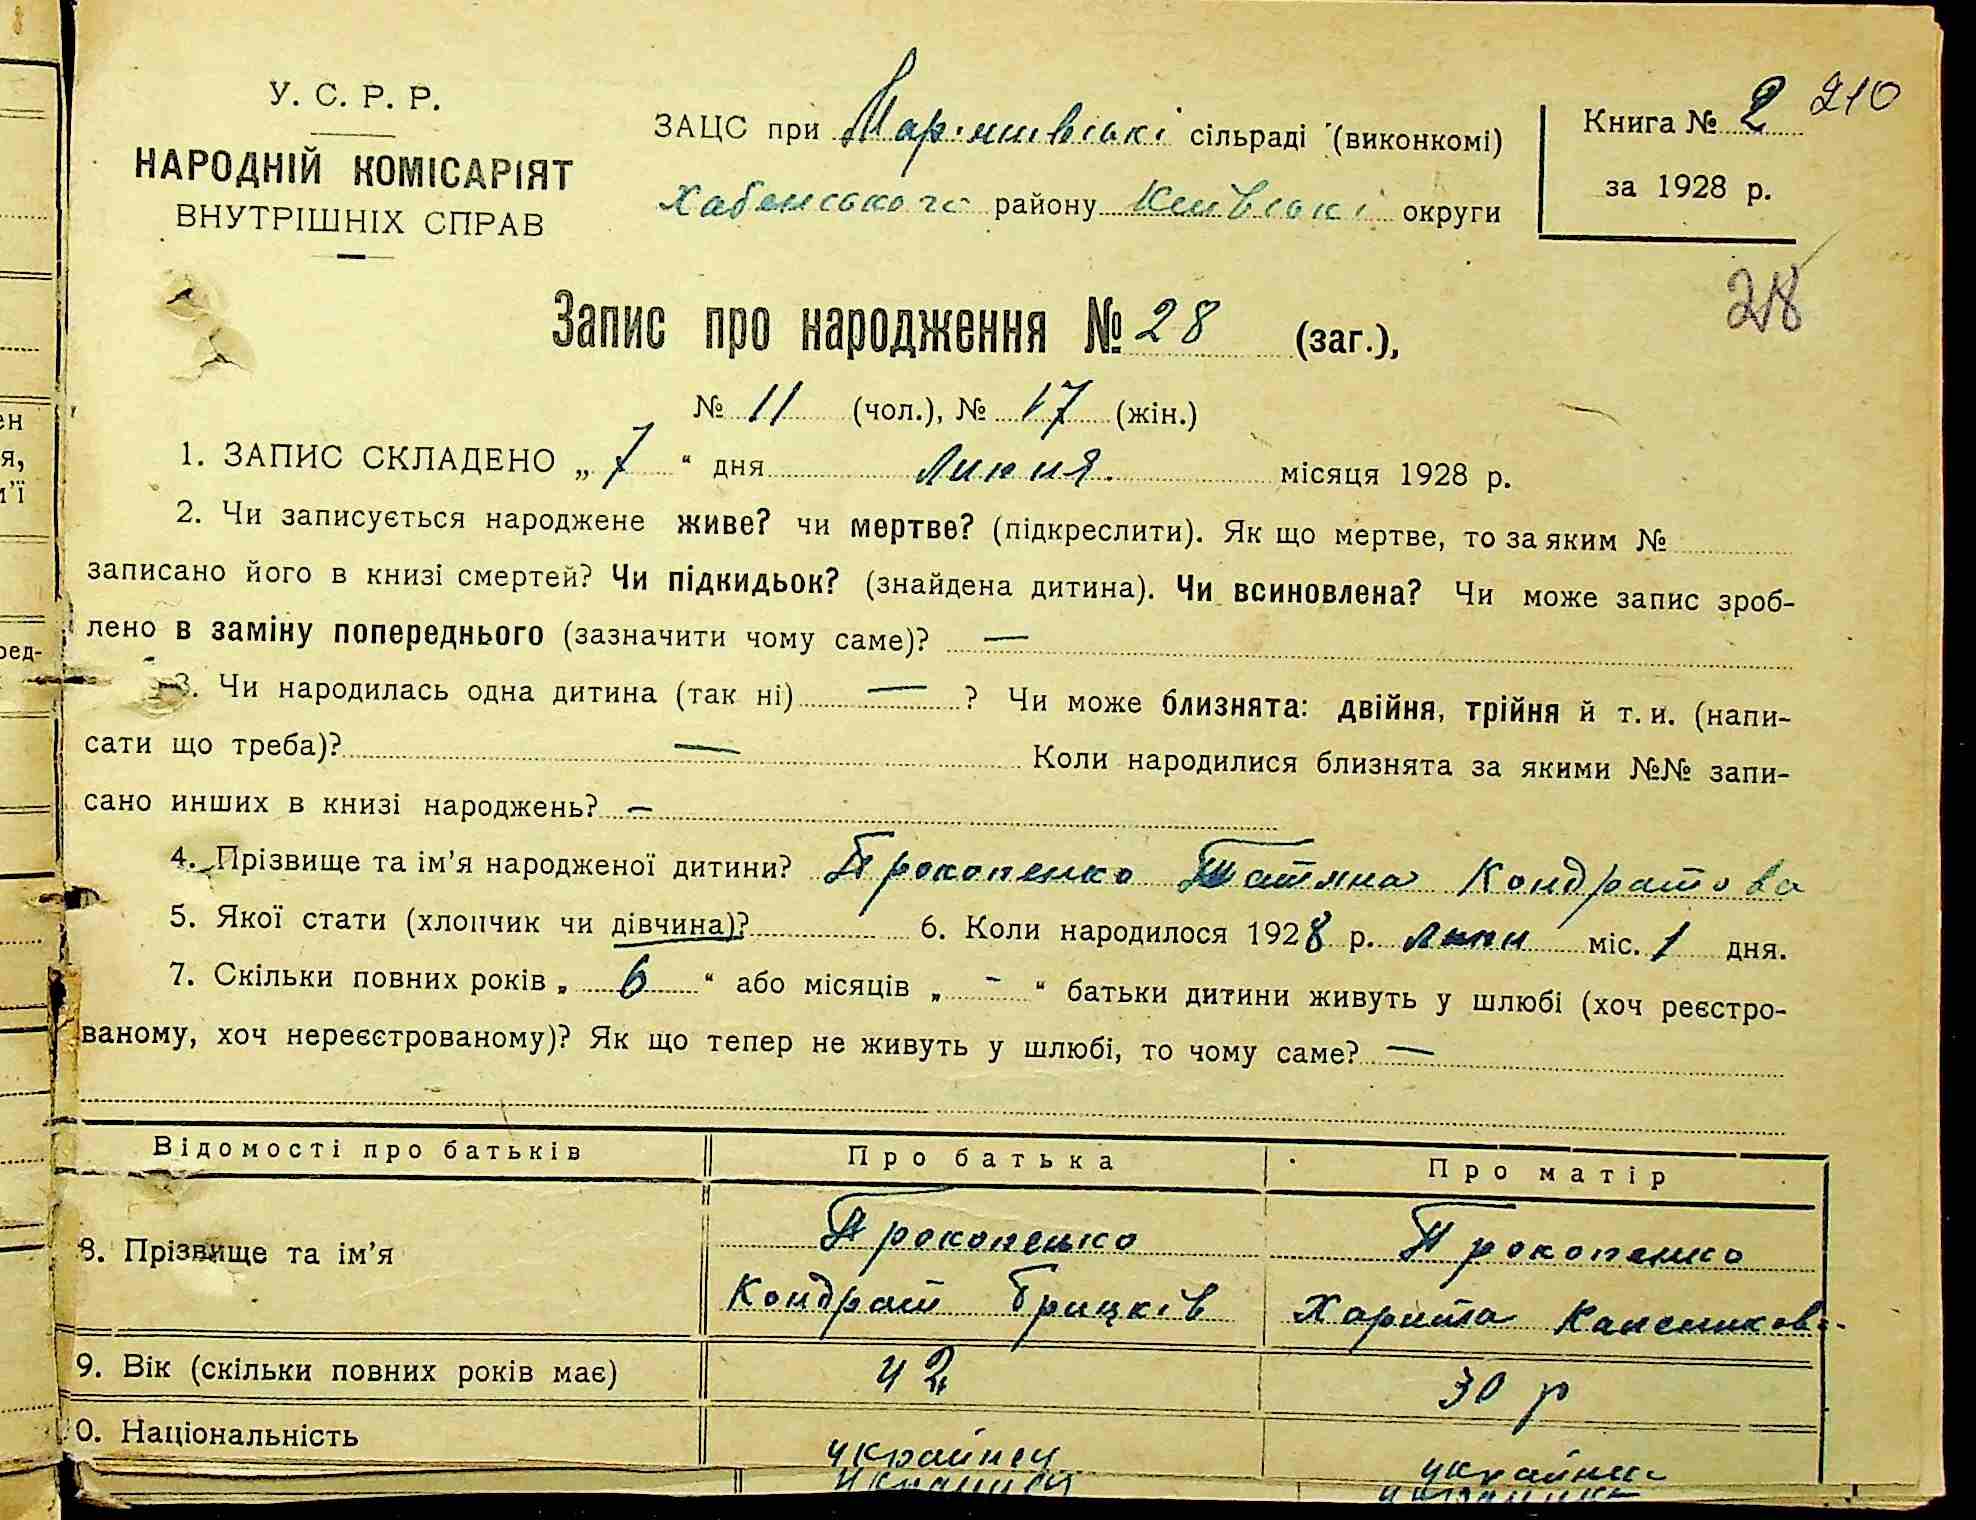 У. С. Р. Р.
НАРОДНІЙ КОМІСАРІЯТ
ВНУТРІШНІХ СПРАВ
ЗАЦС при сільраді (виконкомі)
Хабенського району Київські округи
Книга № 2
210
за 1928 р.
28
Запис про народження № 28 (заг.),
№ 11 (чол.), № 17 (жін.)
1. ЗАПИС СКЛАДЕНО „ 7 “ дня липня місяця 1928 р.
2. Чи записується народжене живе? чи мертве? (підкреслити). Як що мертве, то за яким №
записано його в книзі смертей? Чи підкидьок? (знайдена дитина). Чи всиновлена? Чи може запис зроб-
лено в заміну попереднього (зазначити чому саме)? —
3. Чи народилась одна дитина (так ні) — ? Чи може близнята: двійня, трійня й т. и. (напи-
сати що треба)? — Коли народилися близнята за якими №№ запи-
сано инших в книзі народжень? —
4. Прізвище та ім’я народженої дитини? Прокопенко Татяна Кондратова
5. Якої стати (хлопчик чи дівчина)? 6. Коли народилося 1928 р. липн міс. 1 дня.
7. Скільки повних років „ 6 “ або місяців „ - “ батьки дитини живуть у шлюбі (хоч реєстро-
ваному, хоч нереєстрованому)? Як що тепер не живуть у шлюбі, то чому саме? —
Відомості про батьків Про батька Про матір
8. Прізвище та ім’я Прокопенко Прокопенко
Кондрат Грицків Харита
9. Вік (скільки повних років має) 42 30 р
0. Національність українец українк
ен
я,
и’ї
ред-